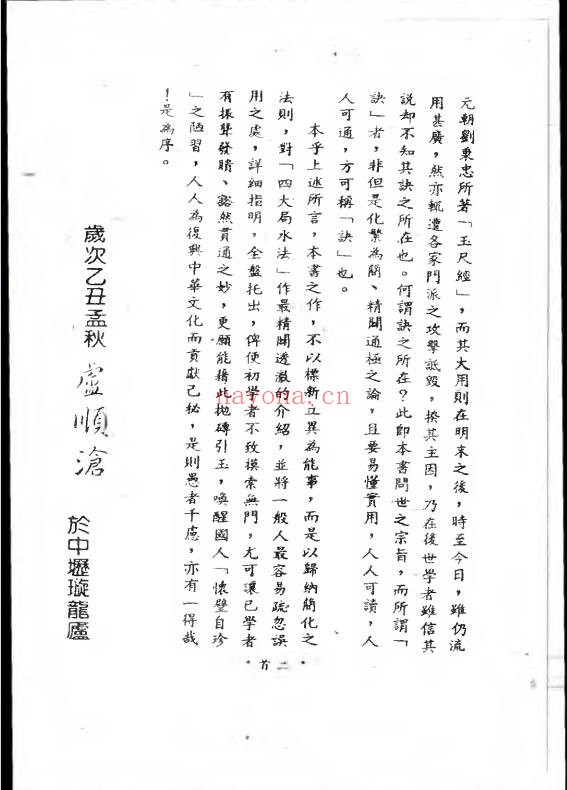 元朝劉秉忠所著「玉尺經」，而其大用則在明末之後，時至今日，雖仍流
用甚廣，然亦輒遭各家門派之攻擊詆毀，揆其主因，乃在後世學者雖信其
說却不知其訣之所在也。何謂訣之所在？此即本書問世之宗旨，而所謂「
訣」者，非但是化繁為簡、精闢通極之論，且要易懂實用，人人可讀，人
人可通，方可稱「訣」也。
本乎上述所言，本書之作，不以標新立異為能事，而是以歸納簡化之
法則，對「四大局水法」作最精闢透澈的介紹，並將一般人最容易疏忽誤
用之處，詳細指明，全盤托出，俾使初學者不致摸索無門，尤可讓已學者
有振聾發聵、豁然貫通之妙，更願能藉此拋磚引玉，喚醒國人「懷璧自珍
」之陋習，人人為復興中華文化而貢獻己秘，是則愚者千慮，亦有一得哉
！是為序。
歲次乙丑孟秋 盧順滄 於中壢璇龍廬
•首二•
nayona.cn